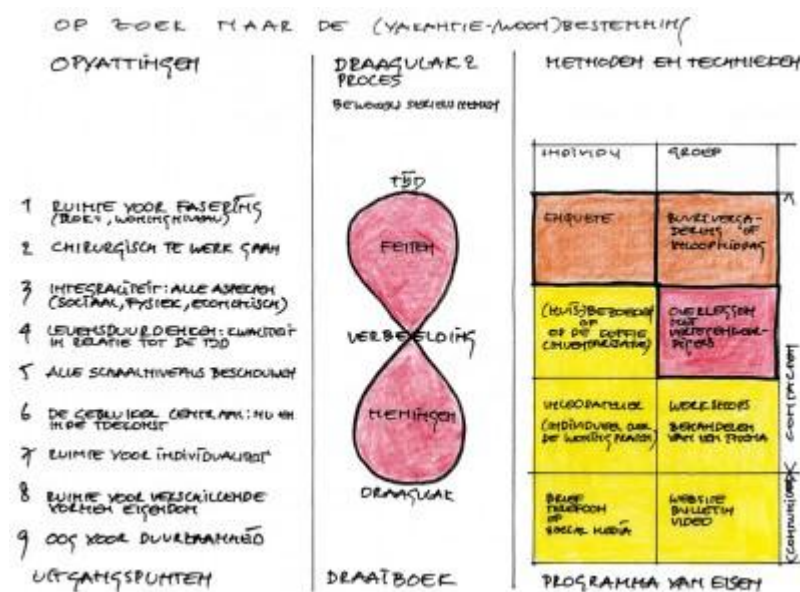 OP ZOEK NAAR DE (VAKANTIE-/WOON)BESTEMMING
OPVATTINGEN
1 RUIMTE VOOR FASERING
(BLOK-, WONINGNIVEAU)
2 CHIRURGISCH TE WERK GAAN
3 INTEGRALITEIT: ALLE ASPECTEN
(SOCIAAL, FYSIEK, ECONOMISCH)
4 LEVENSDUURDENKEN: KWALITEIT
IN RELATIE TOT DE TIJD
5 ALLE SCHAALNIVEAUS BESCHOUWEN
6 DE GEBRUIKER CENTRAAL: NU EN
IN DE TOEKOMST
7 RUIMTE VOOR INDIVIDUALITEIT
8 RUIMTE VOOR VERSCHILLENDE
VORMEN EIGENDOM
9 OOG VOOR DUURZAAMHEID
UITGANGSPUNTEN
DRAAGVLAK &
PROCES
BEWONERS SERIEUS NEMEN
TIJD
FEITEN
VERBEELDING
MENINGEN
DRAAGVLAK
DRAAIBOEK
METHODEN EN TECHNIEKEN
INDIVIDU
GROEP
ENQUETE
BUURTVERGA-
DERING OF
INLOOPMIDDAG
(HUIS)BEZOEKEN
OF
OP DE KOFFIE
(INVENTARISATIE)
OVERLEGGEN
MET
VERTEGENWOOR-
DIGERS
INLOOPATELIER
(INDIVIDUEEL OVER
DE WONING PRATEN)
WORKSHOPS
BEHANDELEN
VAN EEN THEMA
BRIEF
TELEFOON
OF
SOCIAL MEDIA
WEBSITE
BULLETIN
VIDEO
PROGRAMMA VAN EISEN